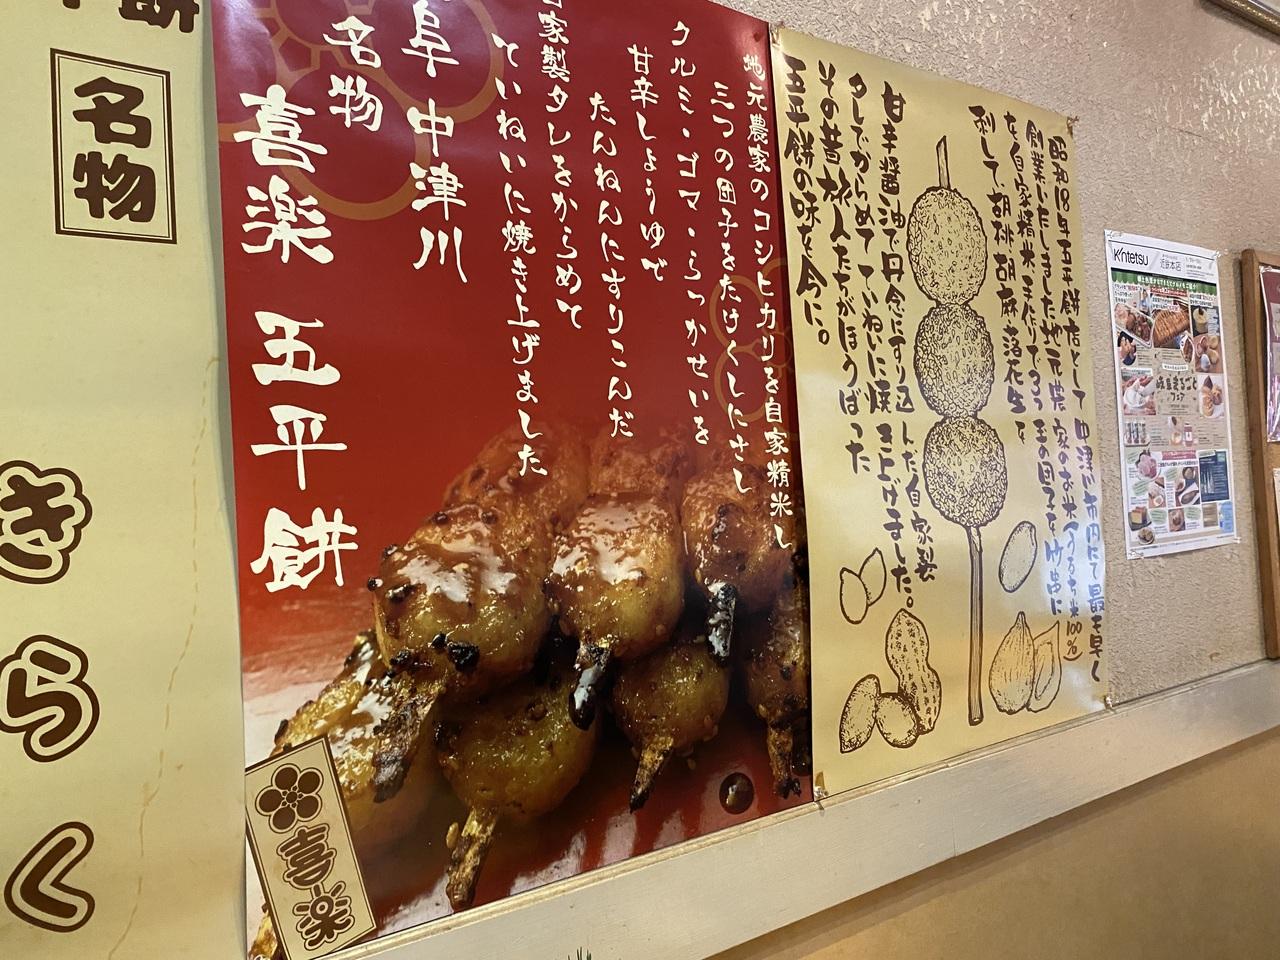 餅
名物
きらく
地元農家のコシヒカリを自家精米し
三つの団子をたけくしにさし
クルミ・ゴマ・らっかせいを
甘辛しょうゆで
たんねんにすりこんだ
家製タレをからめて
ていねいに焼き上げました
阜 中津川
名物
喜楽 五平餅
喜楽
昭和18年五平餅店として 中津川市内にて最も早く
創業いたしました地元農家のお米(うるち米100%)
を自家精米 手作りで3つ玉の団子を竹串に
刺して、胡桃 胡麻 落花生を
甘辛醤油で丹念にすり込んだ自家製
タレでからめて ていねいに焼き上げました。
その昔 旅人たちがほうばった
五平餅の味を今に。
Kintetsu
近鉄本店
岐阜まるごと
フェア